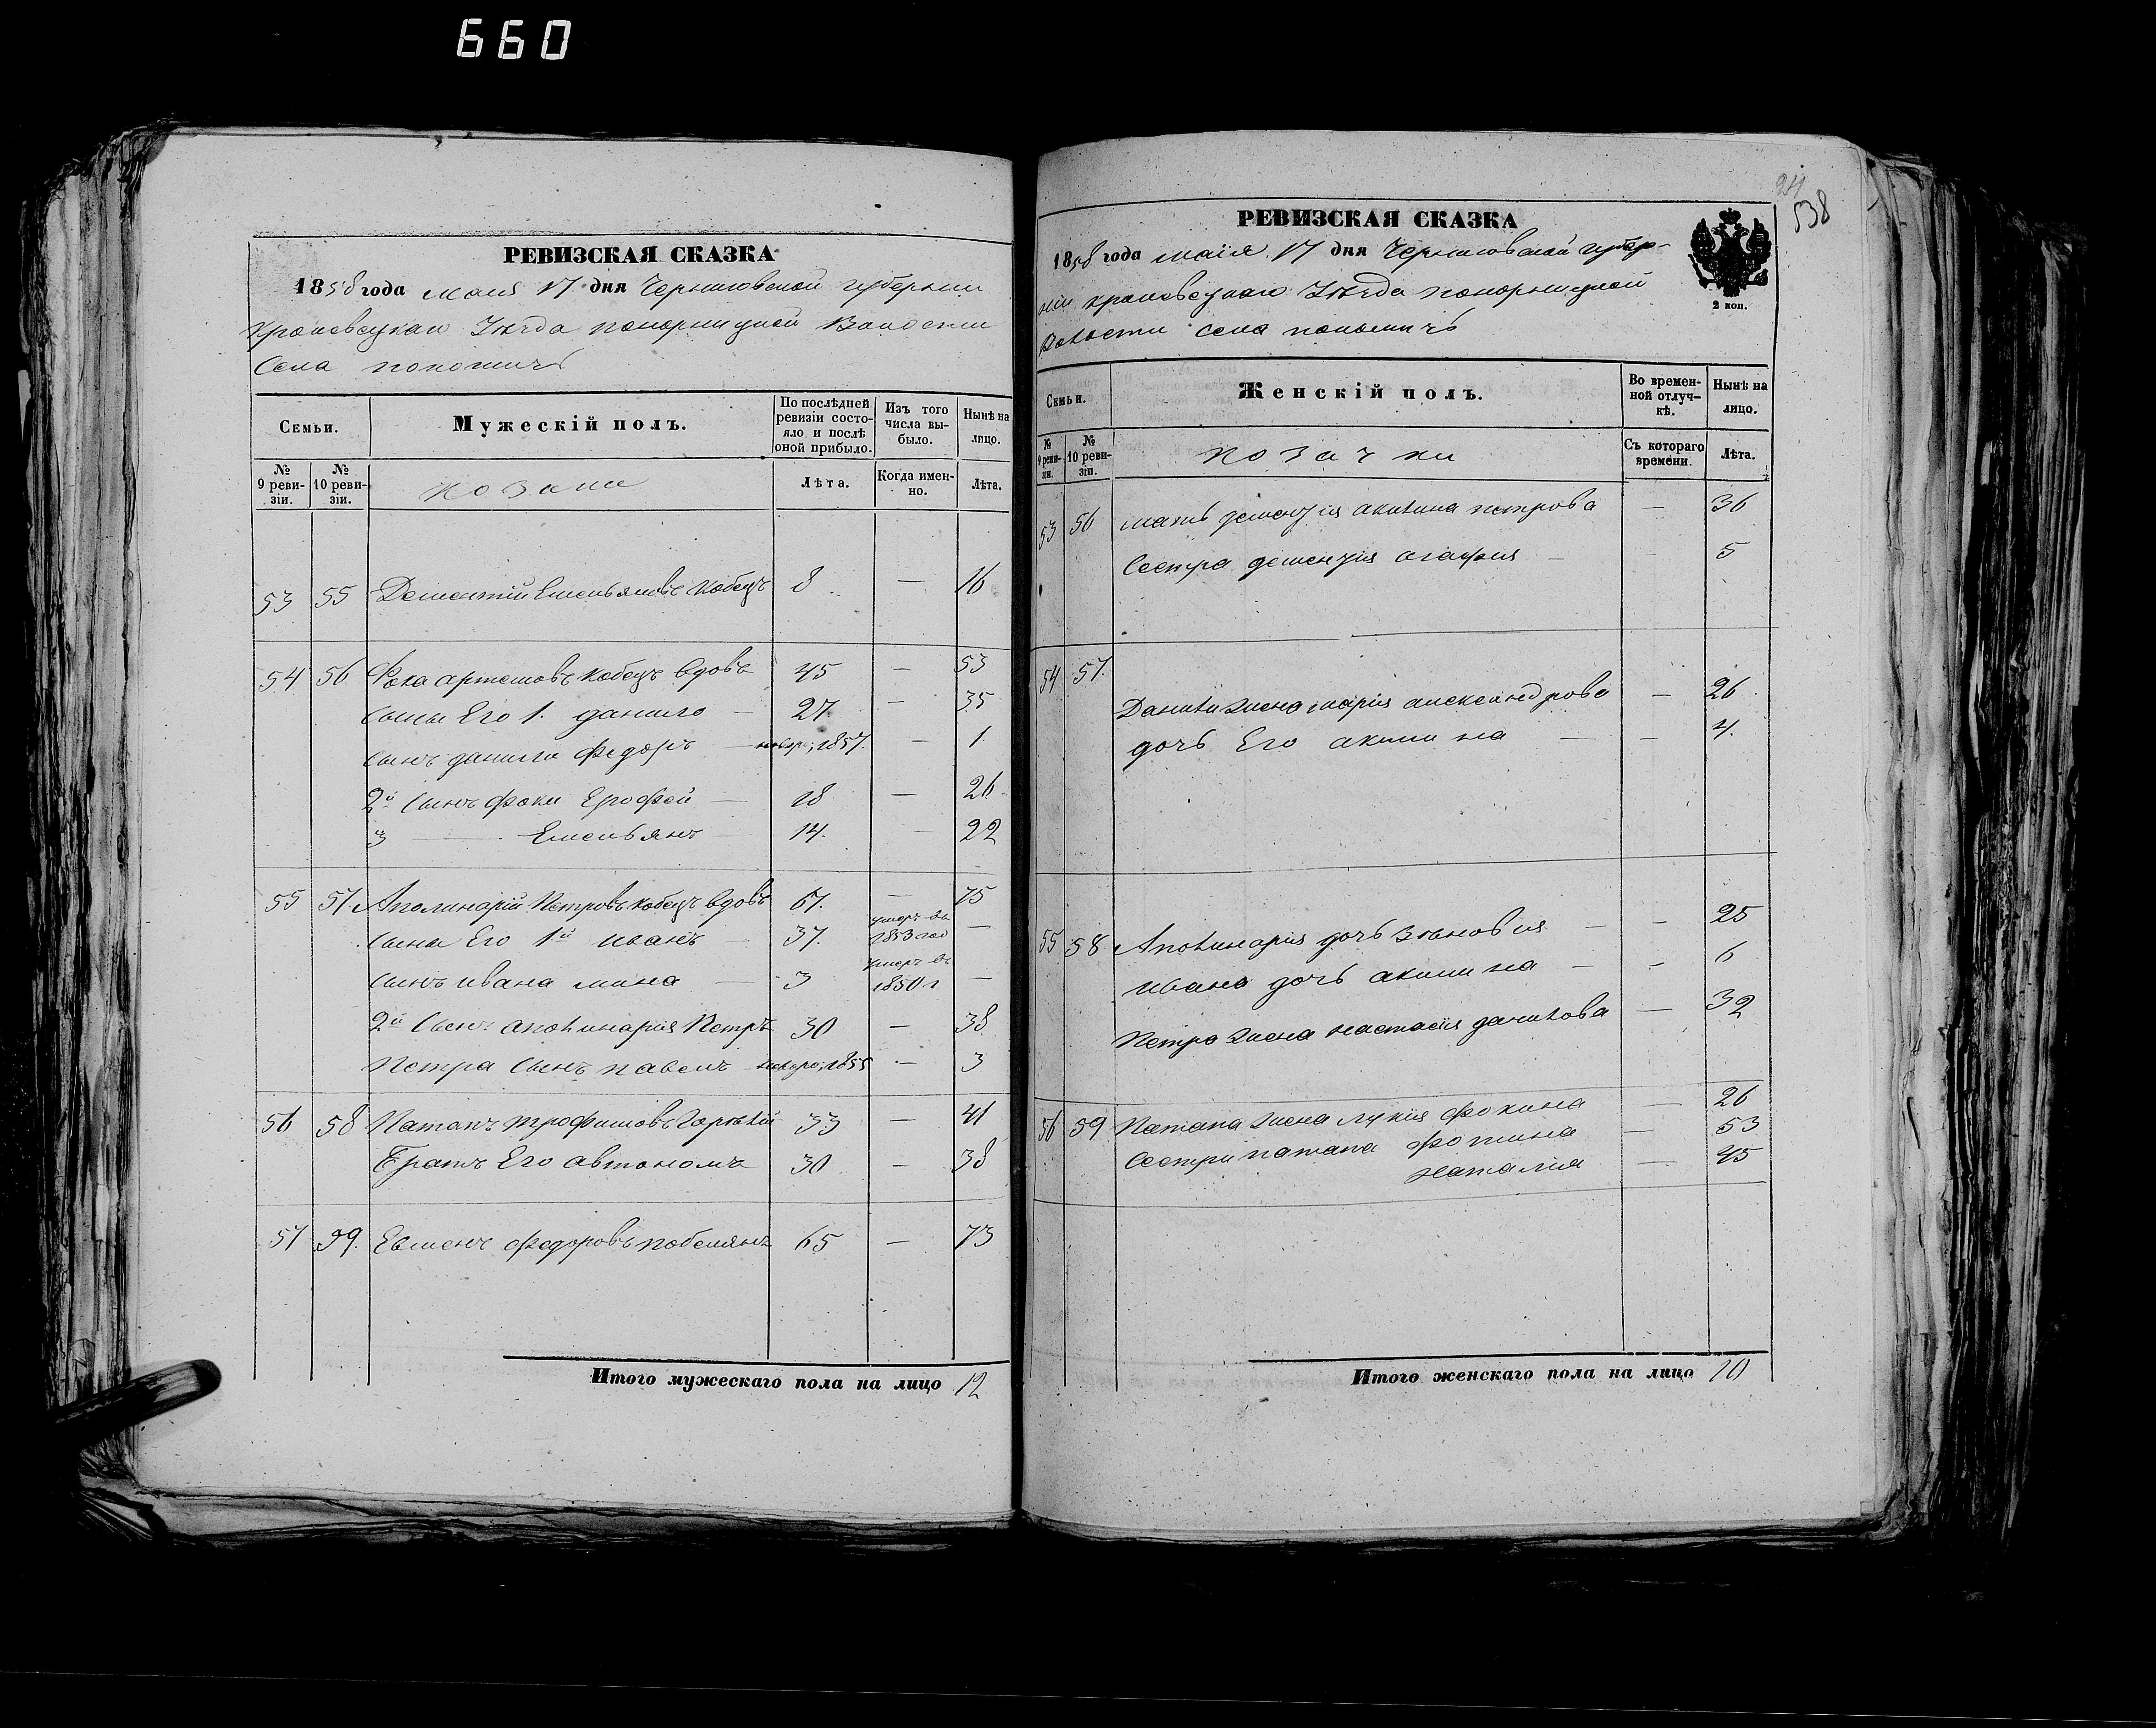 660
РЕВИЗСКАЯ СКАЗКА
1858 года маия 17 дня Черниговской губернии
Кролевецкаго Уезда понорницкой Волости
Села
Семьи.
Мужескій полъ.
По послѣдней ревизіи состояло и послѣ оной прибыло.
Изъ того числа выбыло.
Нынѣ на лицо.
№ 9 ревизіи.
№ 10 ревизіи.
козаки
Лѣта.
Когда именно.
Лѣта.
53 55 Дементій Емельяновъ Кобецъ 8 — 16
54 56 Фока артемовъ кобецъ вдовъ 45 — 53
сыны Его 1. данило — 27. — 35
сынъ данили федоръ — 1857. — 1.
2й сынъ фоки Ерофей — 18 — 26
3 — Емельянъ — 14. — 22
55 57. Аполинарій Петровъ кобецъ вдовъ 67. — 75
сыны Его 1й иванъ — 37. умеръ въ 1853 —
сынъ ивана мина — 3 умеръ въ 1850 г —
2й сынъ аполинария Петръ 30 — 38
Петра сынъ павелъ — 1855 — 3
56 58 Патапъ трофимовъ 33 — 41
Братъ Его автономъ 30 — 38
57 59. Евменъ федоровъ 65 — 73
Итого мужескаго пола на лицо 12
24
538
РЕВИЗСКАЯ СКАЗКА
1858 года маія 17 дня Черниговской губер-
ніи кролевецкаго Уезда понорницкой
волости села
2 коп.
Семьи.
Женскій полъ.
Во временной отлучкѣ.
Нынѣ на лицо.
№ 9 ревизіи.
№ 10 ревизіи.
козачки
Съ котораго времени.
Лѣта.
53 56 мать демензия акилина петрова — 36
Сестра демензия агафия — 5
54 57. Данили жена мария александрова — 26
дочь Его акилина — — 4.
55 58 Аполинария дочь зѣновия — — 25
ивана дочь акилина — — 6
Петра жена настасия данилова — 32
56 59 Патапа жена лукия фокина — 26
Сестри патапа фотина — 53
наталия — 45
Итого женскаго пола на лицо 10